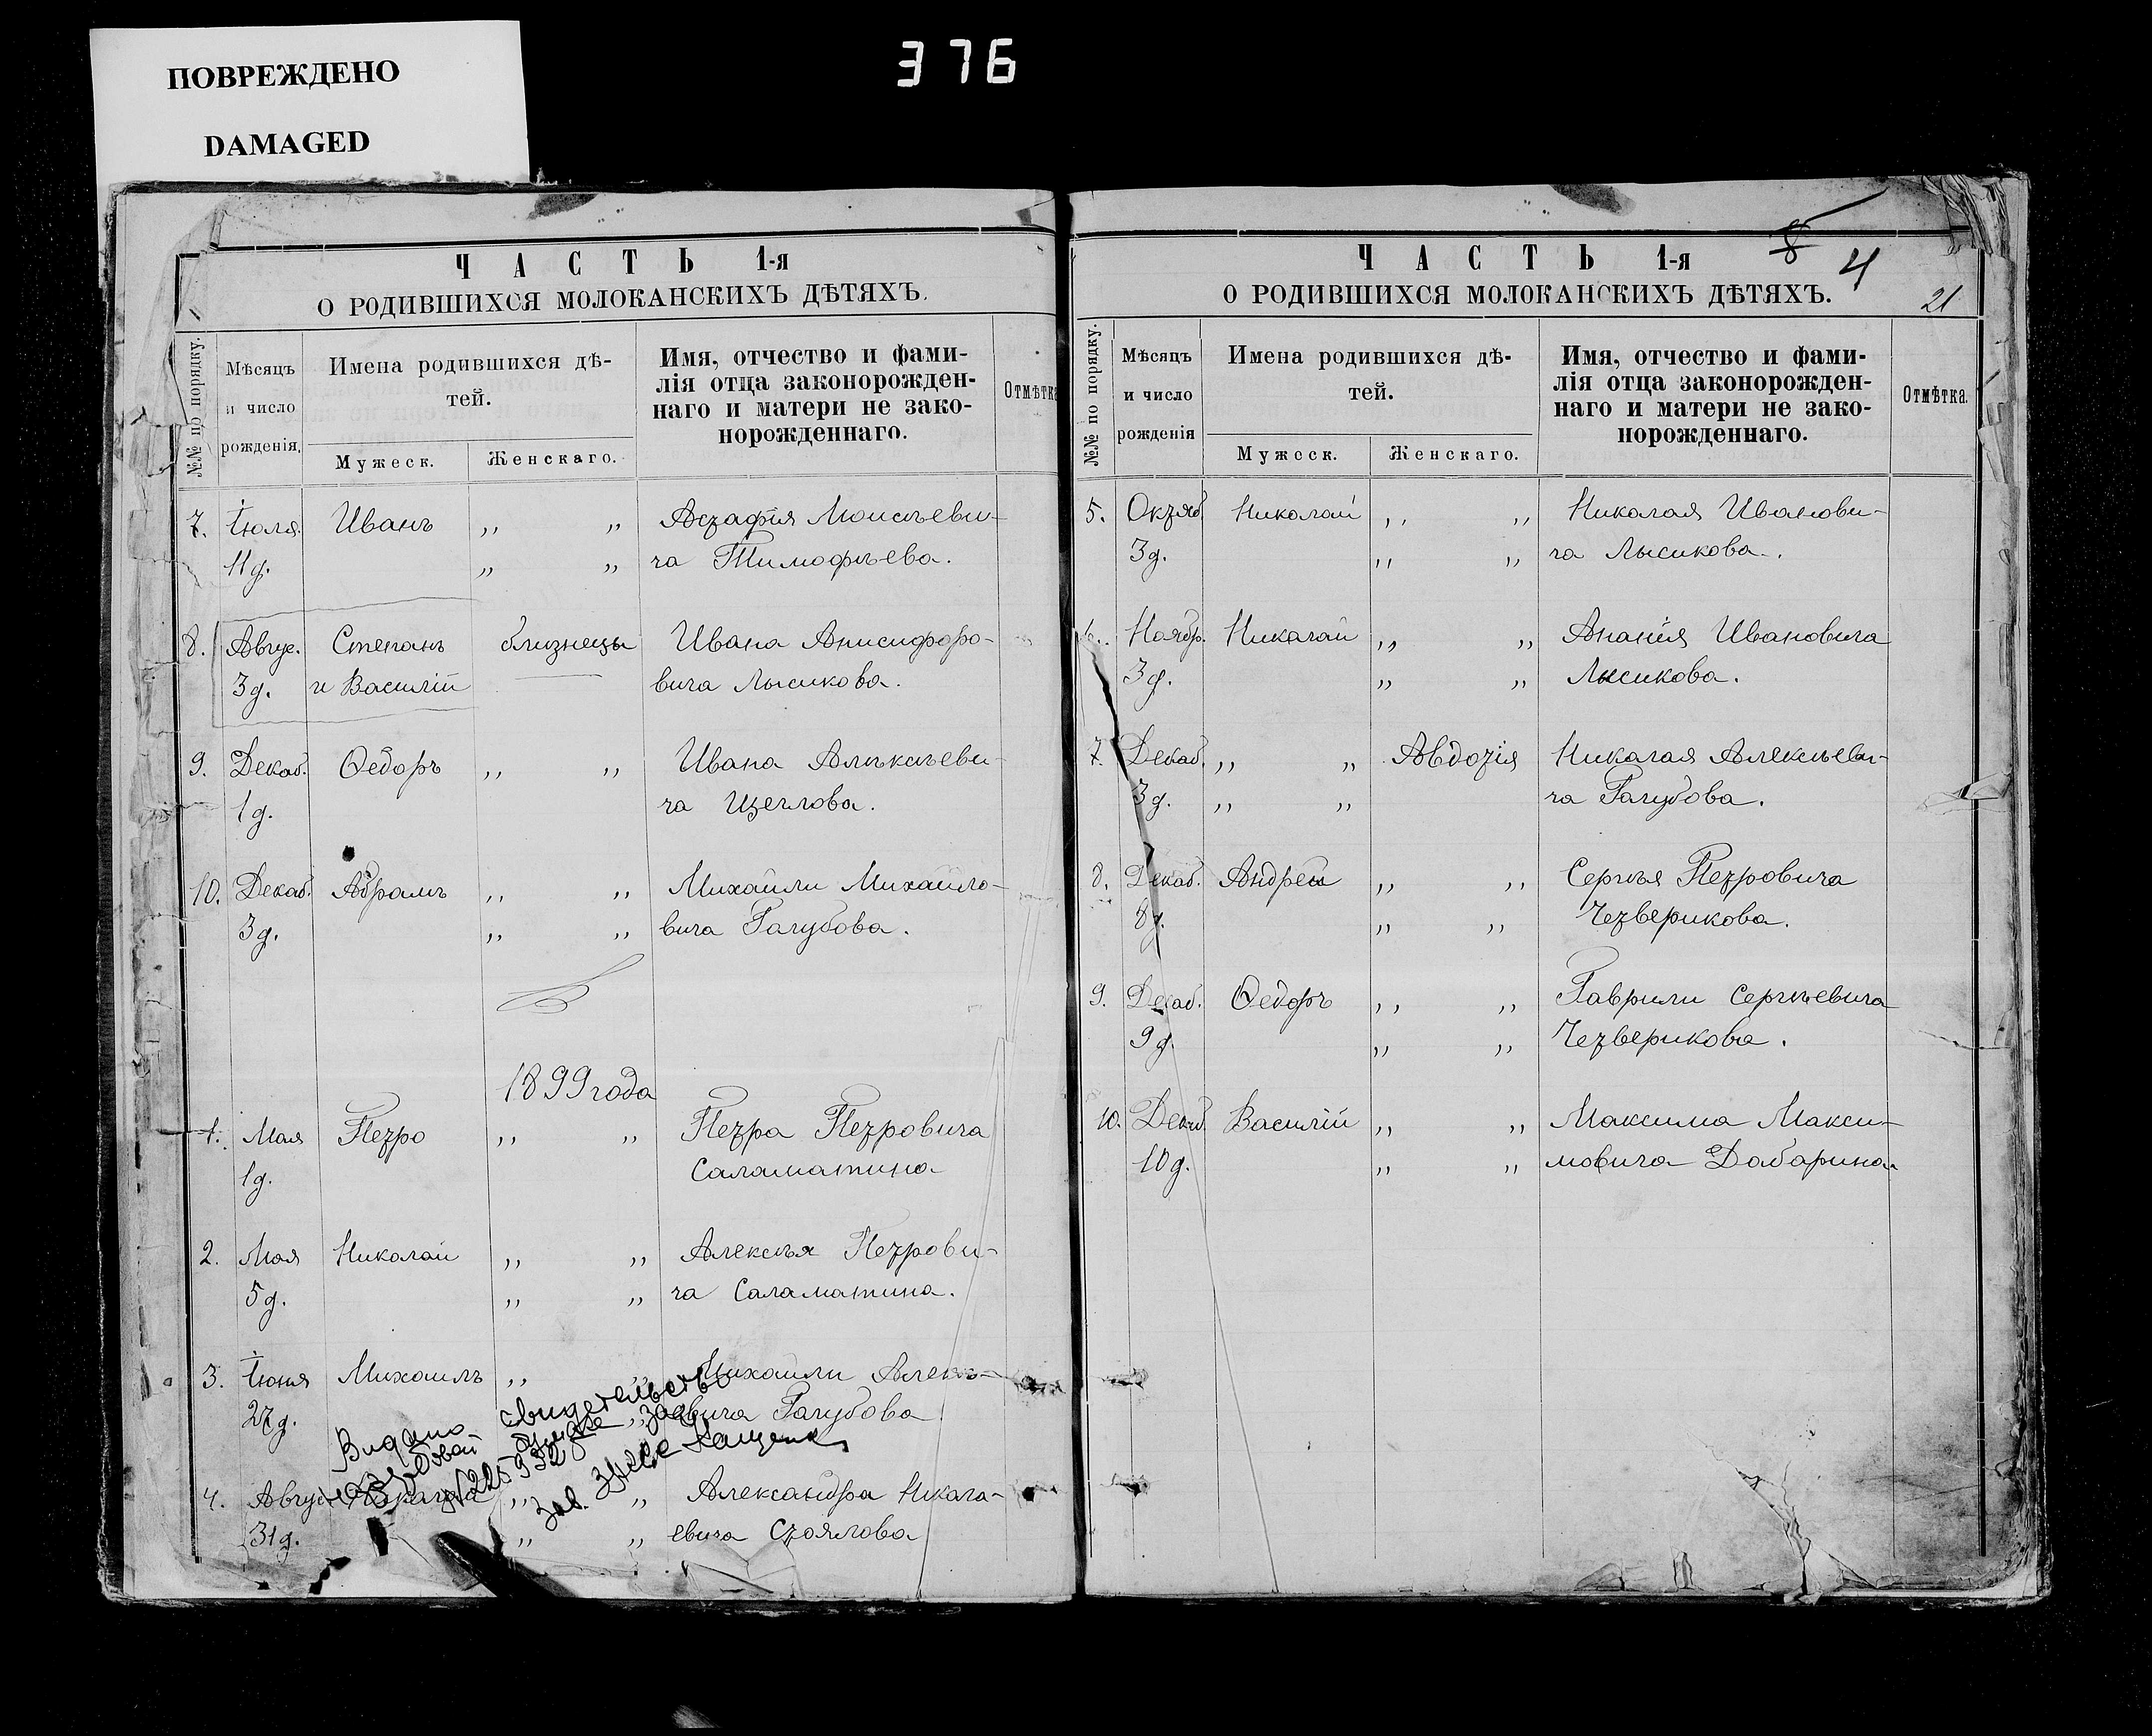 ПОВРЕЖДЕНО
DAMAGED
376
ЧАСТЬ 1-я
О РОДИВШИХСЯ МОЛОКАНСКИХЪ ДѢТЯХЪ.
№№ по порядку.
Мѣсяцъ и число рожденія.
Имена родившихся дѣтей.
Мужеск.
Женскаго.
Имя, отчество и фами-
лія отца законорожден-
наго и матери не зако-
норожденнаго.
Отмѣтка
7. Іюля. Иванъ „ „ Астафія Моисѣеви-
11 д. „ „ ча Тимофѣева.
8. Авгус. Степанъ близнецы Ивана Анисифоро-
3 д. и Василій вича Лысикова.
9. Декаб. Ѳедоръ „ „ Ивана Алѣксѣеви-
1 д. ча Щеглова.
10. Декаб. Абрамъ „ „ Михайли Михайло-
3 д. „ „ вича Галубова.
1899 года
1. Мая Петро „ „ Петра Петровича
1 д. Саламатина
2. Мая Николай „ „ Алексѣя Петрови-
5 д. „ „ ча Саламатина.
3. Іюня Михаилъ „ „ Михайли Алексѣ-
27 д. евича Галубова
Выдано свидетельство
зав. загса Кащенко
4. Август „ „ Александра Никала-
31 д. „ „ евича Стоялова
8 4
21
ЧАСТЬ 1-я
О РОДИВШИХСЯ МОЛОКАНСКИХЪ ДѢТЯХЪ.
№№ по порядку.
Мѣсяцъ и число рожденія
Имена родившихся дѣ-
тей.
Мужеск.
Женскаго.
Имя, отчество и фами-
лія отца законорожден-
наго и матери не зако-
норожденнаго.
Отмѣтка.
5. Октяб. Николай „ „ Николая Иванови-
3 д. „ „ ча Лысикова.
6. Ноябр. Никалай „ „ Ананія Ивановича
3 д. „ „ Лысикова.
7. Декаб. „ „ Авдотія Никалая Алексѣеви-
3 д. „ „ ча Галубова.
8. Декаб. Андрей „ „ Сергѣя Петровича
8 д. „ „ Четверикова.
9. Декаб. Ѳедоръ „ „ Гаврили Сергѣевича
9 д. „ „ Четверикова.
10. Декаб. Василій „ „ Максима Макси-
10 д. „ „ мовича Дабарина.